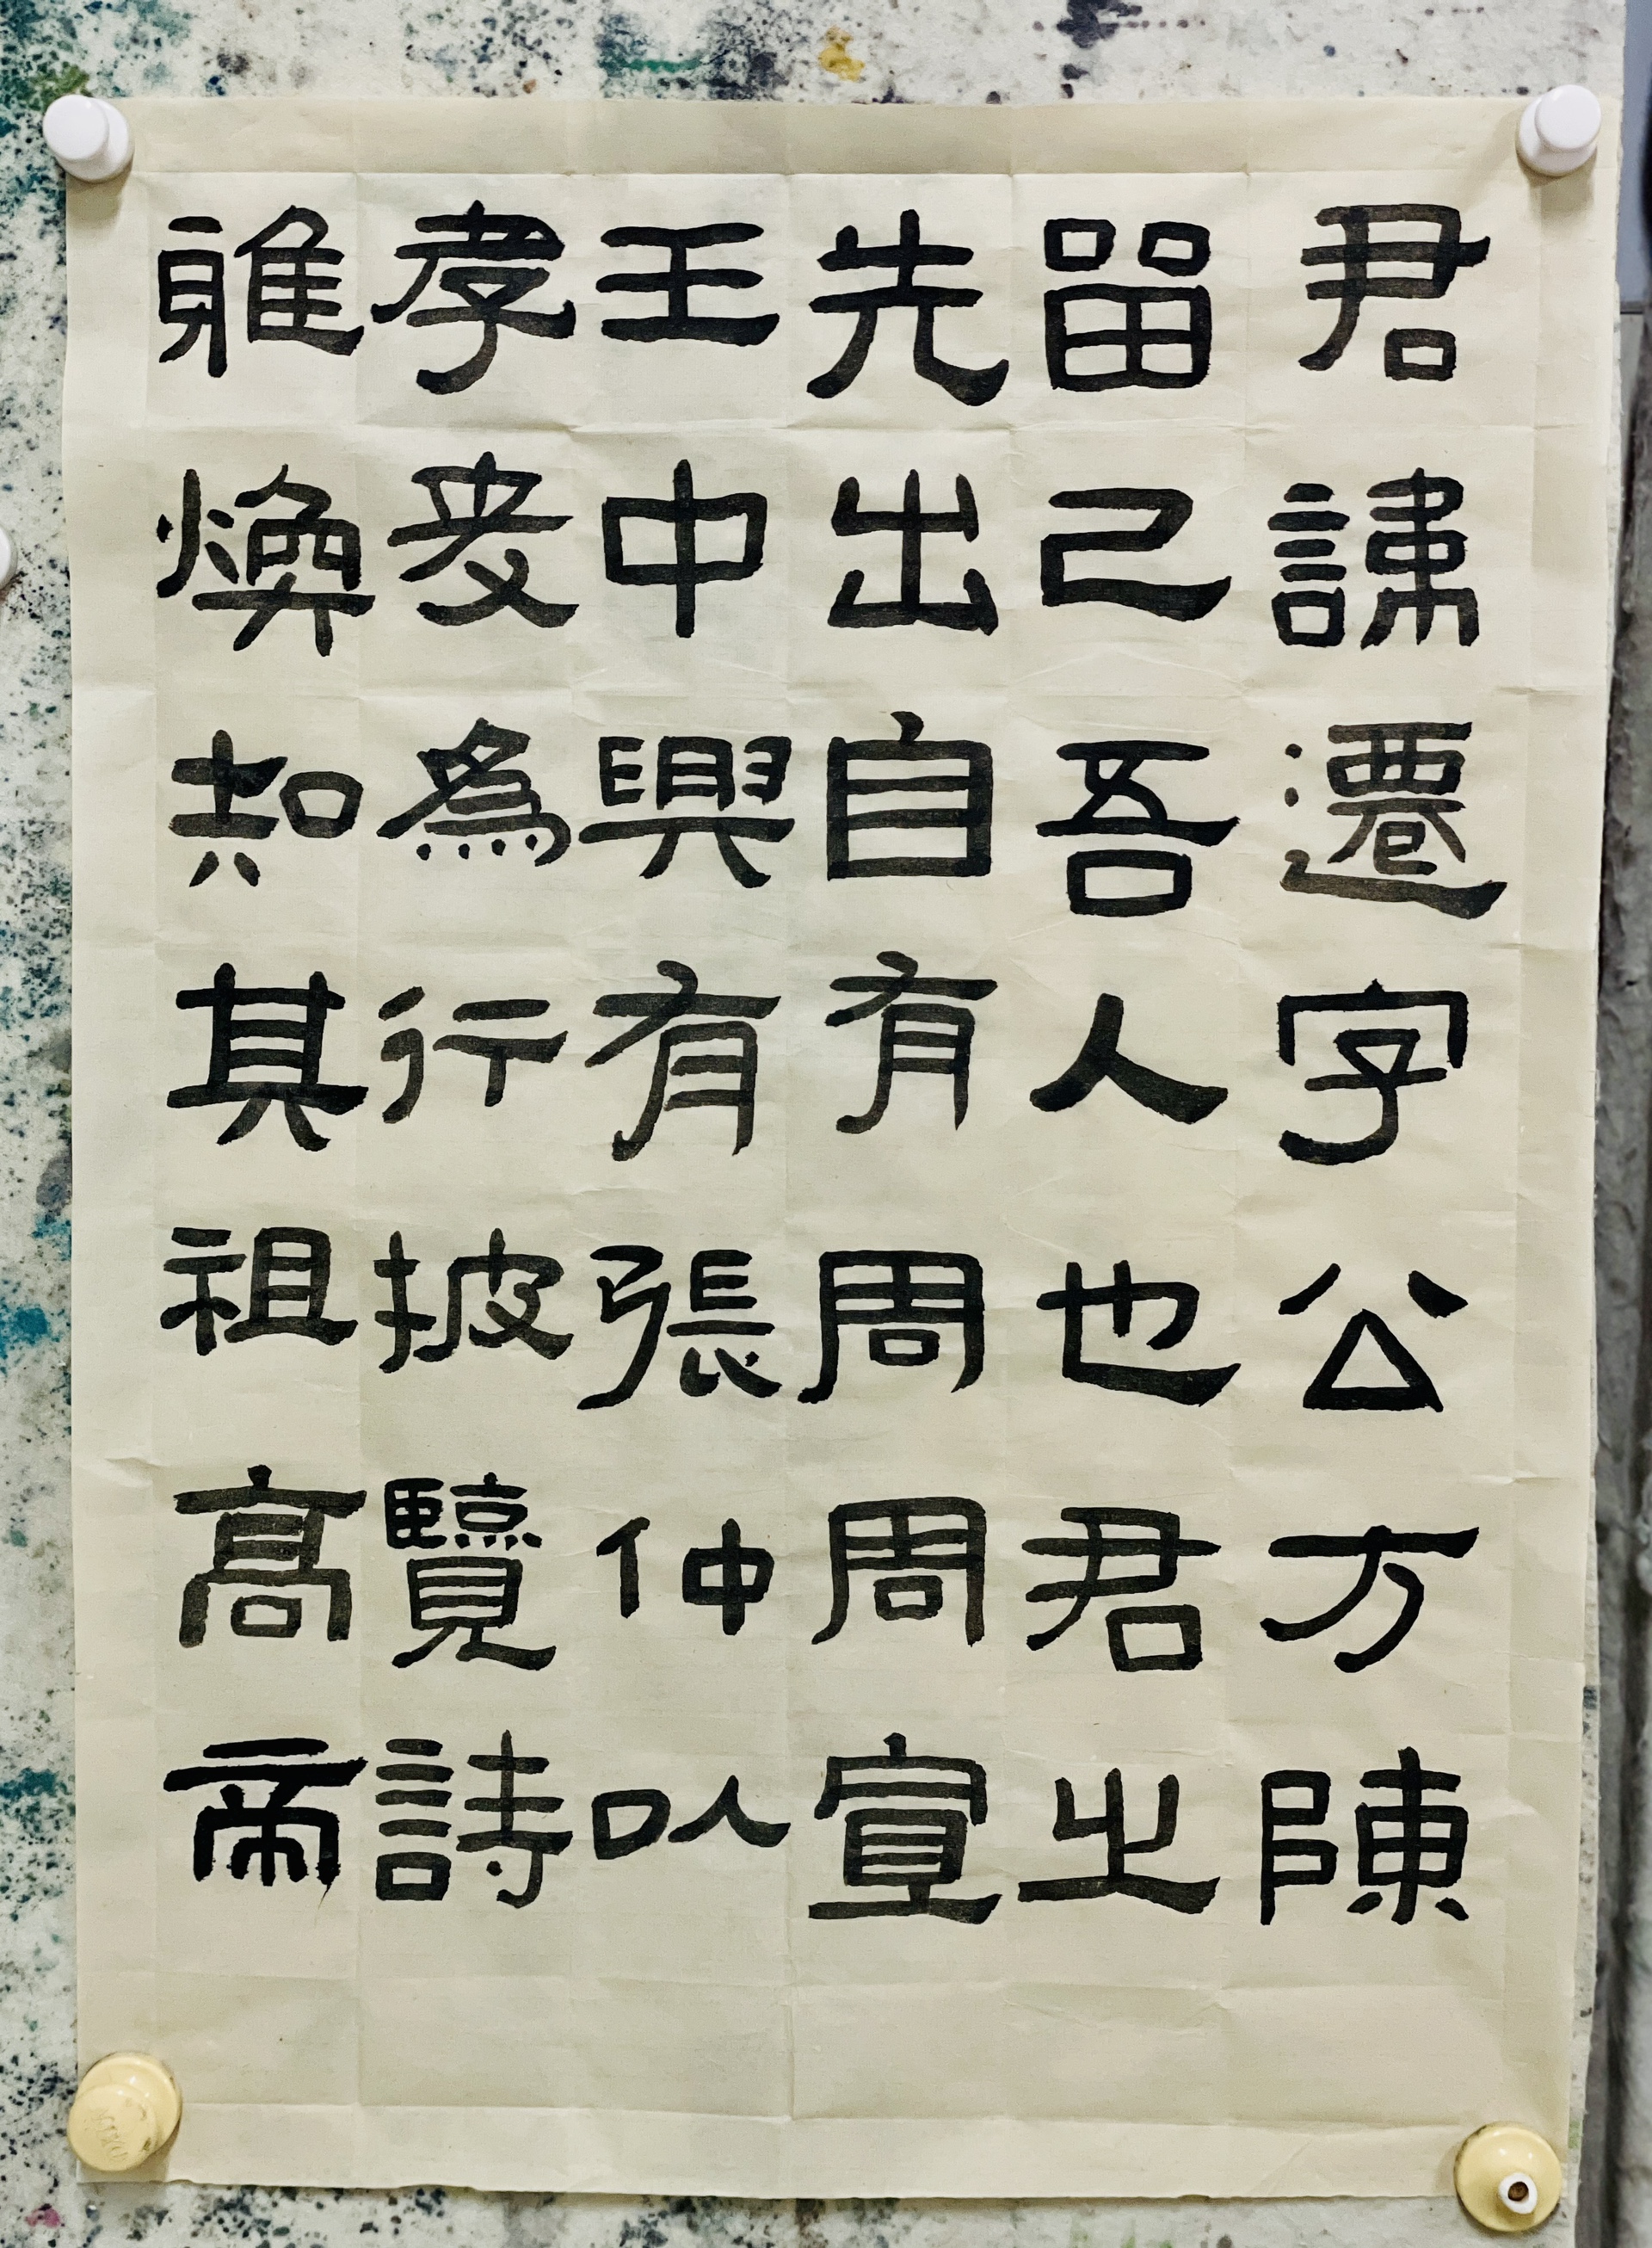 君諱遷字公方陳
留己吾人也君之
先出自有周周宣
王中興有張仲以
孝友為行披覽詩
雅煥知其祖高帝